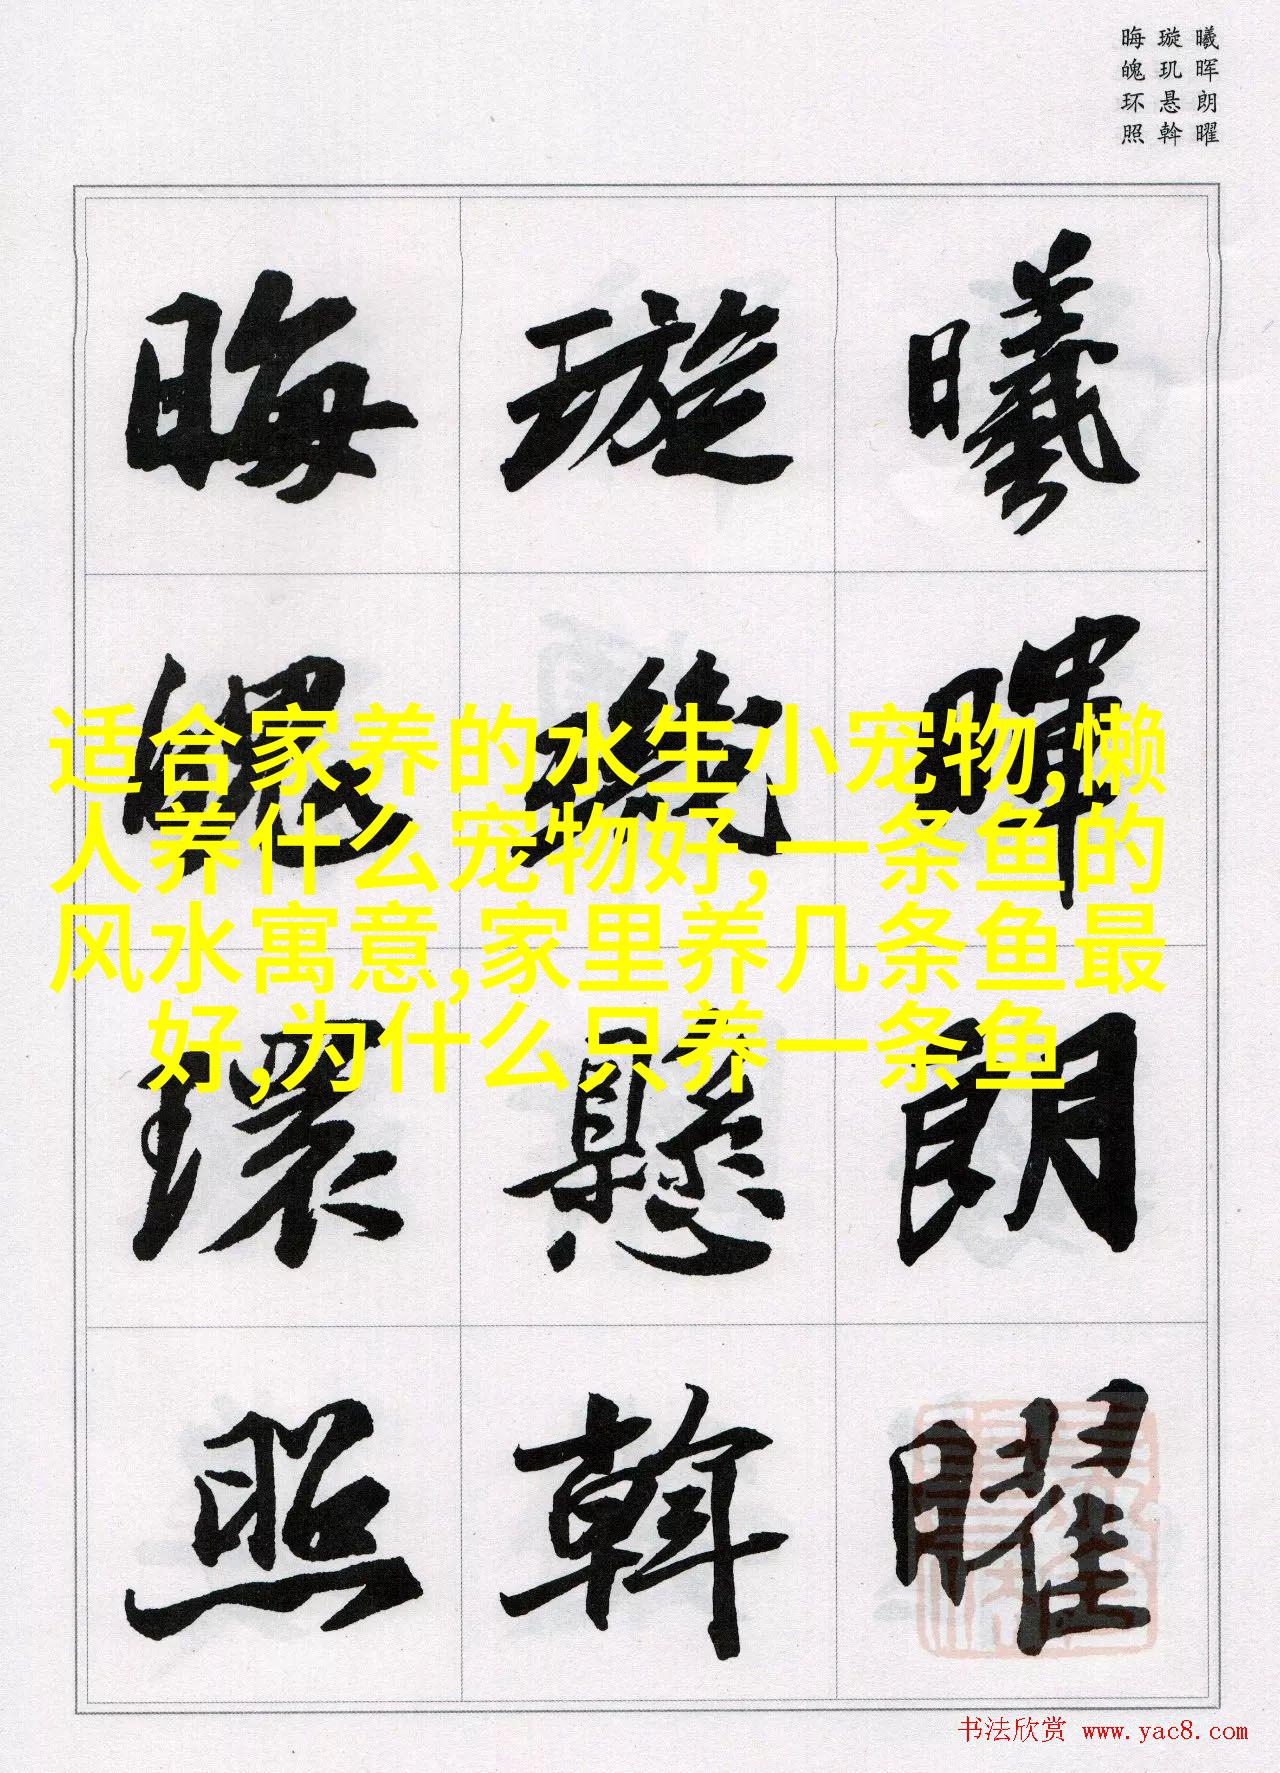 曦晖朗曜
璇玑悬斡
晦魄环照
曦暉朗曜
璇璣懸斡
晦魄環照
适合家养的水生小宠物,懒
人养什么宠物好,一条鱼的
风水寓意,家里养几条鱼最
好,为什么只养一条鱼
书法欣赏 www.yac8.com